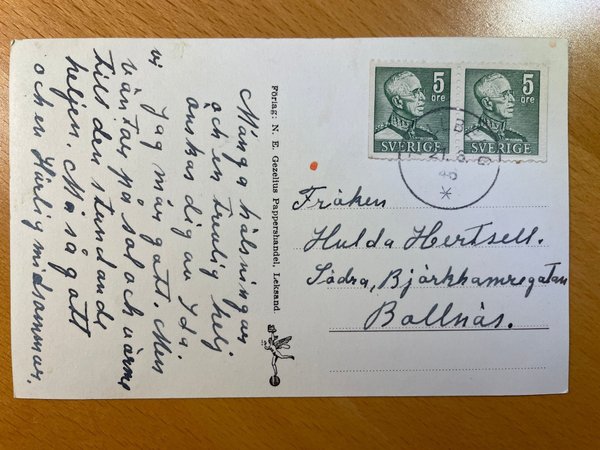 Många hälsningar
och en trevlig helj
önskas dig av Ida.
Jag mår gott. Men
vi väntar på sol och värme
till den stundande
heljen. Må så gott
och en Härlig midsommar.
Förlag: N. E. Gezelius Pappershandel, Leksand.
5
öre
SVERIGE
5
öre
SVERIGE
Fröken
Hulda Hertsell.
Södra, Björkhamregatan
Bollnäs.